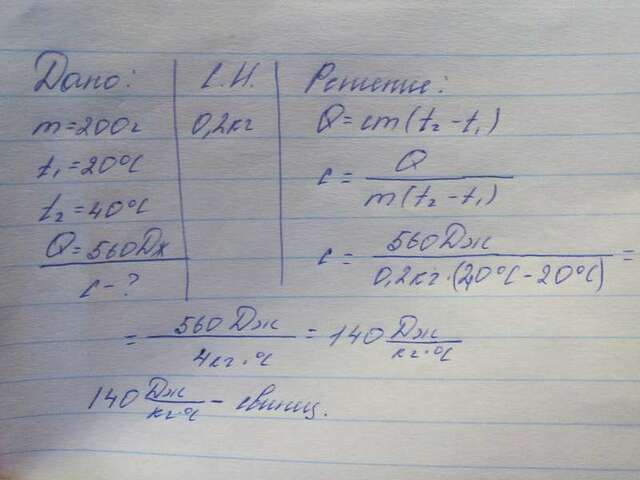 Дано:
m=200г
t₁=20°С
t₂=40°С
Q=560Дж
с-?
С.И.
0,2кг
Решение:
Q=cm(t₂-t₁)
c= Q / m(t₂-t₁)
c= 560Дж / 0,2кг·(40°С-20°С) =
= 560Дж / 4кг·°С = 140 Дж / кг·°С
140 Дж / кг·°С - свинец.